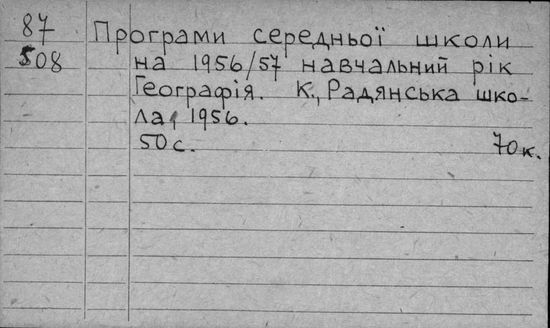 87 Програми середньої школи
508 на 1956/57 навчальний рік
Географія. К., Радянська шко-
ла, 1956.
50 с. 70 к.